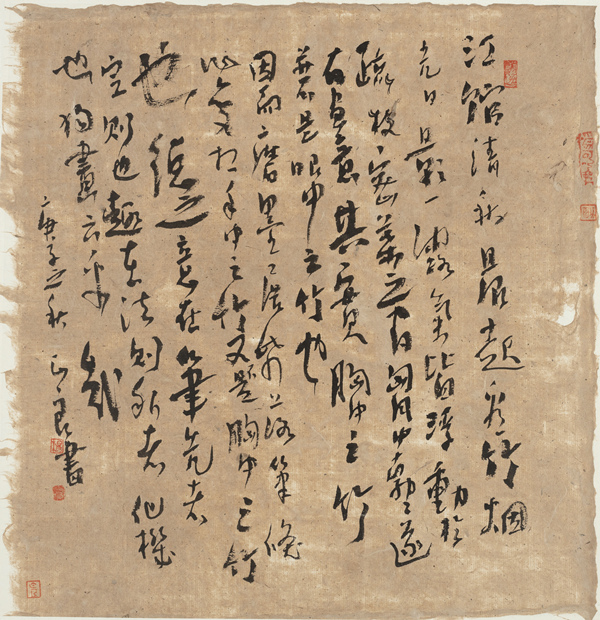 江館清秋晨起看竹烟
光日影露氣皆浮動於
疏枝密葉之間胸中勃勃遂
有畫意其實胸中之竹
並不是眼中之竹也
因而磨墨展紙落筆倏
作變相手中之竹又不是胸中之竹
也總之意在筆先者
定則也趣在法則外者化機
也獨畫云乎哉
庚子之秋 良書